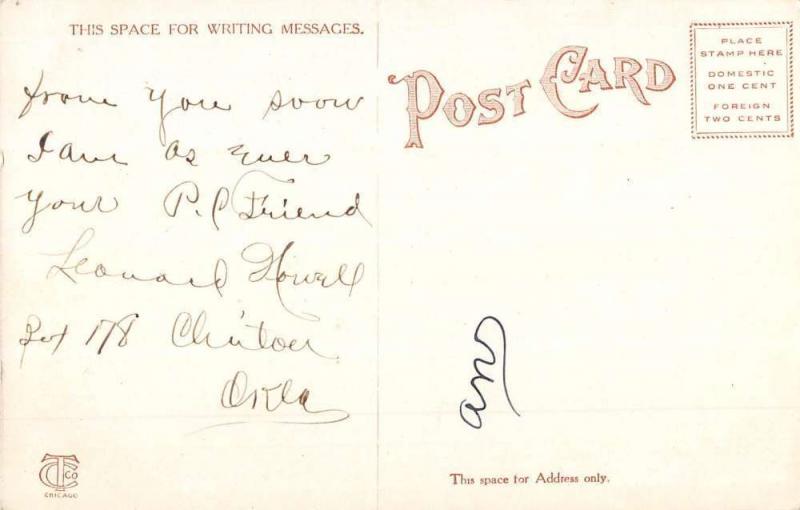 THIS SPACE FOR WRITING MESSAGES.
from you soon
I am as ever
your P.C Friend
Leonard Howell
Box 178 Clinton
Okla
CTC Co
CHICAGO
POST CARD
PLACE
STAMP HERE
DOMESTIC
ONE CENT
FOREIGN
TWO CENTS
This space for Address only.